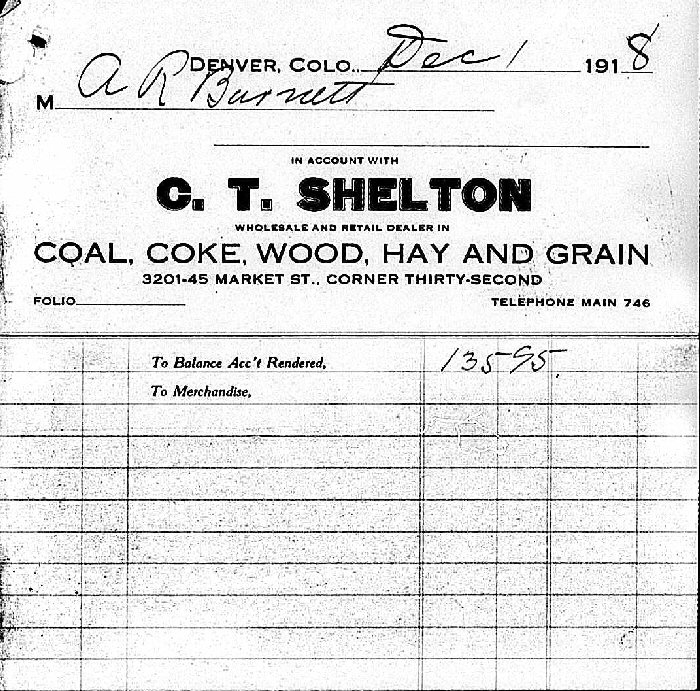 DENVER, COLO., Dec 1 1918
M A R Burnett
IN ACCOUNT WITH
C. T. SHELTON
WHOLESALE AND RETAIL DEALER IN
COAL, COKE, WOOD, HAY AND GRAIN
3201-45 MARKET ST., CORNER THIRTY-SECOND
FOLIO TELEPHONE MAIN 746
To Balance Acc't Rendered, 135 95
To Merchandise,